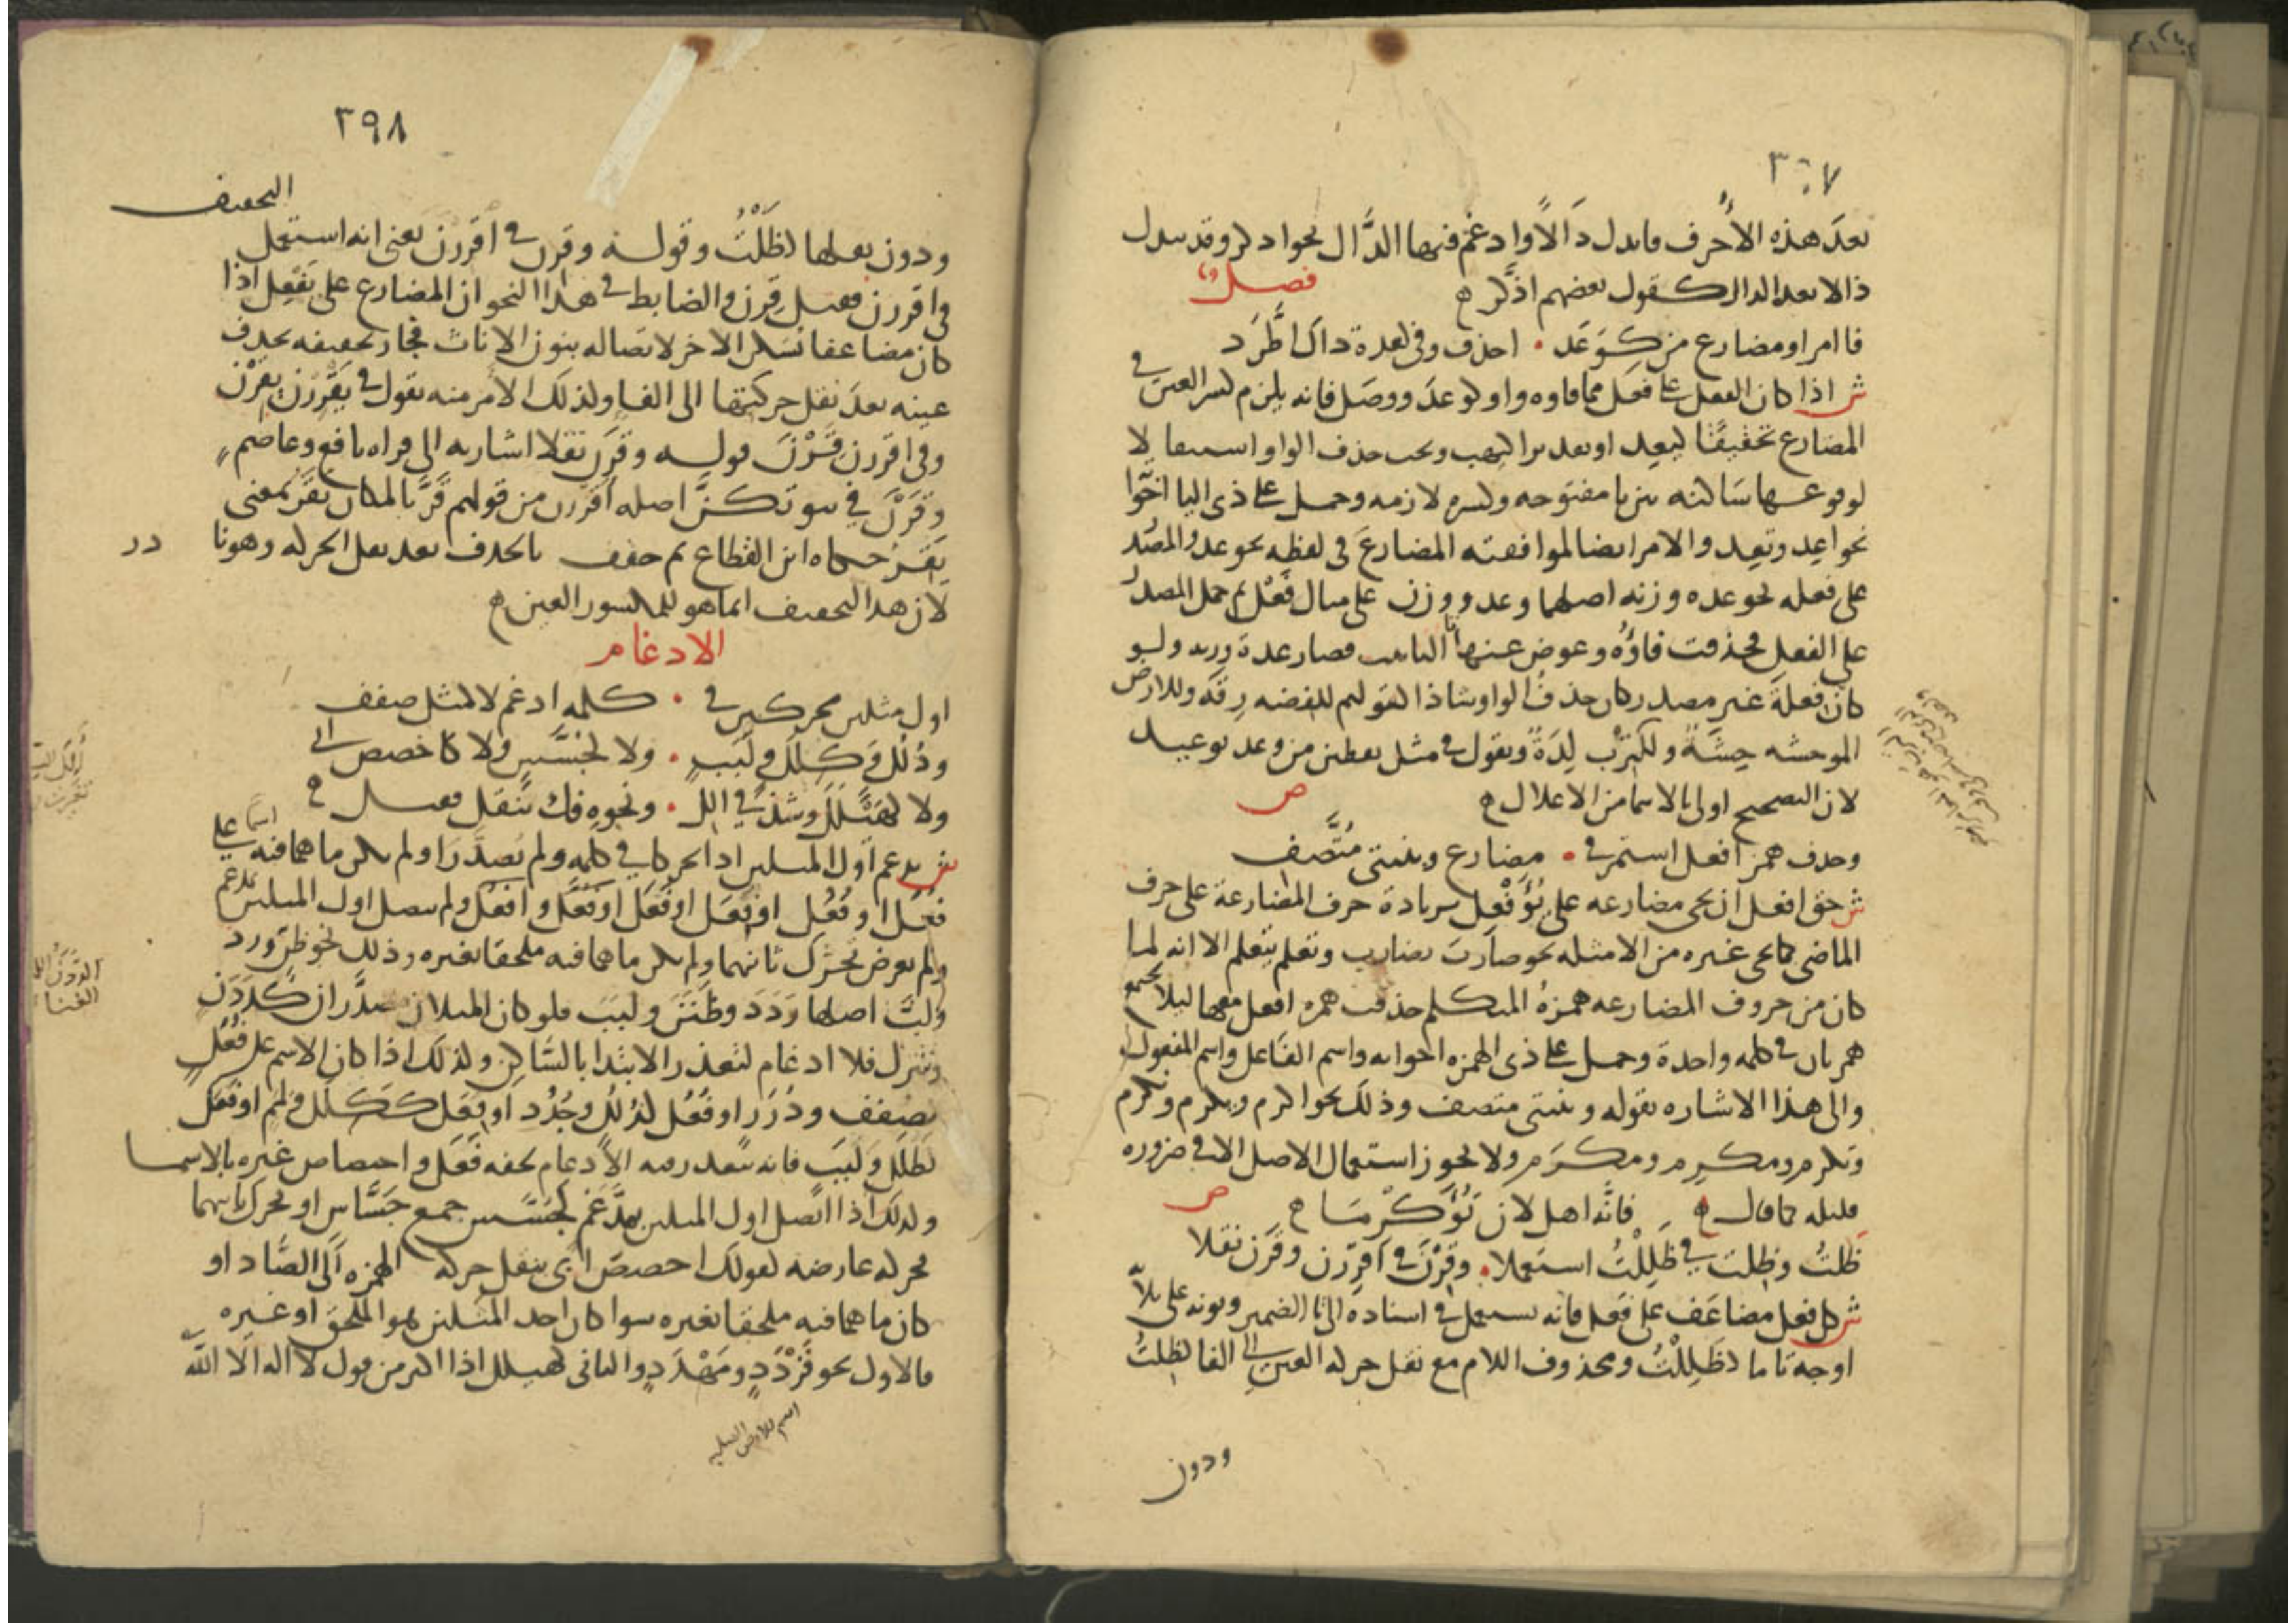 ٣٩٧
بعد هذه الاحرف فابدل دالا وادغم فيها الدال نحو ادكر وقد تبدل
ذالا بعد الدال كقول بعضهم اذكر ه فصل
فا امر او مضارع من كوعد . احذف وفي لعدة ذاك اطرد
ش اذا كان الفعل على فعل مما فاوه واو لوعد ووصل فانه يلزم كسر العين في
المضارع تخفيفا ليعد او تقديرا ليهب ويجب حذف الواو استثقالا
لوقوعها ساكنة بين يا مفتوحه وكسره لازمه وحمل على ذي اليا اخوا
نحو اعد وتعد والامر ايضا لموافقته المضارع في لفظه نحو عد والمصدر
على فعله نحو عده وزنه اصلهما وعد ووزن على مثال فعل ثم حمل المصدر
على الفعل فحذفت فاوه وعوض عنها تا التانيث فصار عدة وزنه ولو
كان فعلة غير مصدر كان حذف الواو شاذا لقولهم للفضه رقة وللارض
الموحشه حشة ولكترب لدة وتقول في مثل يقطين من وعد يوعيد
لان التصحيح اولى بالاسما من الاعلال ه ص
وحذف همز افعل استمر في . مضارع وبنيتى متصف
ش حق افعل ان يجي مضارعه على يؤفعل بزيادة حرف المضارعة على حرف
الماضي كما يجي غيره من الامثله نحو ضارب يضارب وتعلم يتعلم الا انه لما
كان من حروف المضارعه همزة المتكلم حذفت همزه افعل معها ليلا تجتمع
همزتان في كلمه واحدة وحمل على ذي الهمزه اخواته واسم الفاعل واسم المفعول
والى هذا الاشاره بقوله وبنيتى متصف وذلك نحو اكرم ويكرم ونكرم
وتكرم ومكرم ومكرم ولا يجوز استعمال الاصل الا في ضروره
قليله كما قال ه فانه اهل لان يؤكرما ه ص
ظلت وظلت في ظللت استعملا . وقرن في اقررن وقرن نقلا
ش كل فعل مضاعف على فعل فانه يستعمل في اسناده الى تا الضمير ونونه على ثلاثه
اوجه تاما كظللت ومحذوف اللام مع نقل حركه العين الى الفا كظلت
ودون
٣٩٨
ودون نقلها كظلت وقوله وقرن في اقررن يعني انه استعمل التخفيف
في اقررن فقيل قرن والضابط في هذا النحو ان المضارع على يفعل اذا
كان مضاعفا سكن الاخر لاتصاله بنون الاناث فجاز تخفيفه بحذف
عينه بعد نقل حركتها الى الفا وكذلك الامر منه تقول في يقررن يقرن
وفي اقررن قرن قوله وقرن نقلا اشار به الى قراه نافع وعاصم
وقرن في بيوتكن اصله اقررن من قولهم قر بالمكان يقر بمعنى
يقر حكاه ابن القطاع ثم خفف بالحذف بعد نقل الحركه وهو نا در
لان هذا التخفيف انما هو للمكسور العين ه
الادغام
اول مثلين محركين في . كلمه ادغم لا كمثل صفف
وذلل وكلل ولبب . ولا كجسس ولا كاخصص ابي
ولا كهيلل وشذ في الل . ونحوه فك بنقل فقبل ه
ش يدغم اول المثلين اذا تحركا في كلمه ولم يصدرا ولم يكن ما هما فيه اسما على
فعل او فعل او فعل او فعل او فعل وافعل ولم يتصل اول المثلين بمدغم
ولم يعرض تحرك ثانيهما ولم يكن ما هما فيه ملحقا بغيره وذلك نحو ظن ورد
ولب اصلها ردد وظنن ولبب فلو كان المثلان مصدران كددن
وتتزل فلا ادغام لتعذر الابتدا بالساكن ولذلك اذا كان الاسم على فعل
كصفف ودرر او فعل كذلل وجدد او فعل ككلل ولمم او فعل
كطلل ولبب فانه يتعذر فيه الادغام لخفه فعل واختصاص غيره بالاسما
وكذلك اذا اتصل اول المثلين بمدغم كجسس جمع جساس او تحرك ثانيهما
بحركه عارضه كقولك اخصص ابي بنقل حركه الهمزه الى الصاد او
كان ما هما فيه ملحقا بغيره سوا كان احد المثلين هو الملحق او غيره
فالاول نحو قردد ومهدد والثاني كهيلل اذا اكثر من قول لا اله الا الله
اسم للارض الصلبه